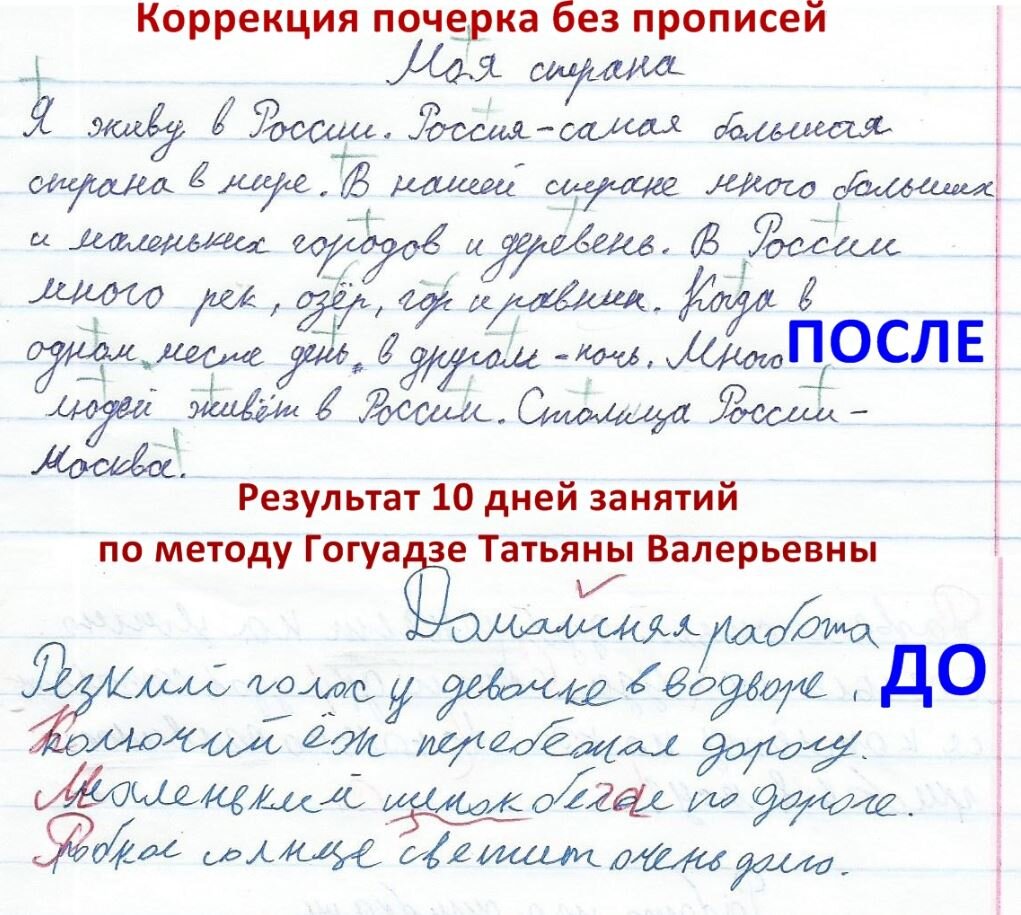 Коррекция почерка без прописей
Моя страна
Я живу в России. Россия-самая большая
страна в мире. В нашей стране много больших
и маленьких городов и деревень. В России
много рек, озёр, гор и равнин. Когда в
одном месте день, в другом - ночь. Много
ПОСЛЕ
людей живёт в России. Столица России-
Москва.
Результат 10 дней занятий
по методу Гогуадзе Татьяны Валерьевны
Домашняя работа
ДО
Резкий голос у девочке в водворе.
Колючий ёж перебежал дорогу.
Маленький по дороге.
Робкое солнце светит очень